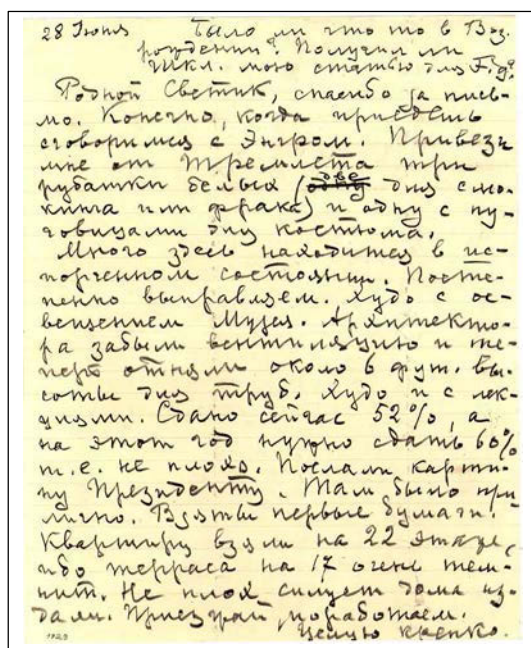 28 Июня Было ли что то в Воз.
рождении? Получил ли
Шкл. мою статью для Fig?
Родной Светик, спасибо за пись-
мо. Конечно, когда приедешь
сговоримся с Энгром. Привези
мне от Тремлета три
рубашки белых (две для смо-
кинга или фрака) и одну с пу-
говицами для костюма.
Много здесь находится в ис-
порченном состоянии. Посте-
пенно выправляем. Худо с ос-
вещением Музея. Архитекто-
ра забыли вентиляцию и те-
перь отняли около 6 фут. вы-
соты для труб. Худо и с лек-
циями. Сдано сейчас 52%, а
на этот год нужно сдать 60%
т.е. не плохо. Послали карти-
ну Президенту. Там было при
лично. Взяты первые бумаги.
Квартиру взяли на 22 этаже,
ибо терраса на 17 очень тем-
нит. Не плох силует дома из-
дали. Приезжай, поработаем.
Целую крепко.
1929